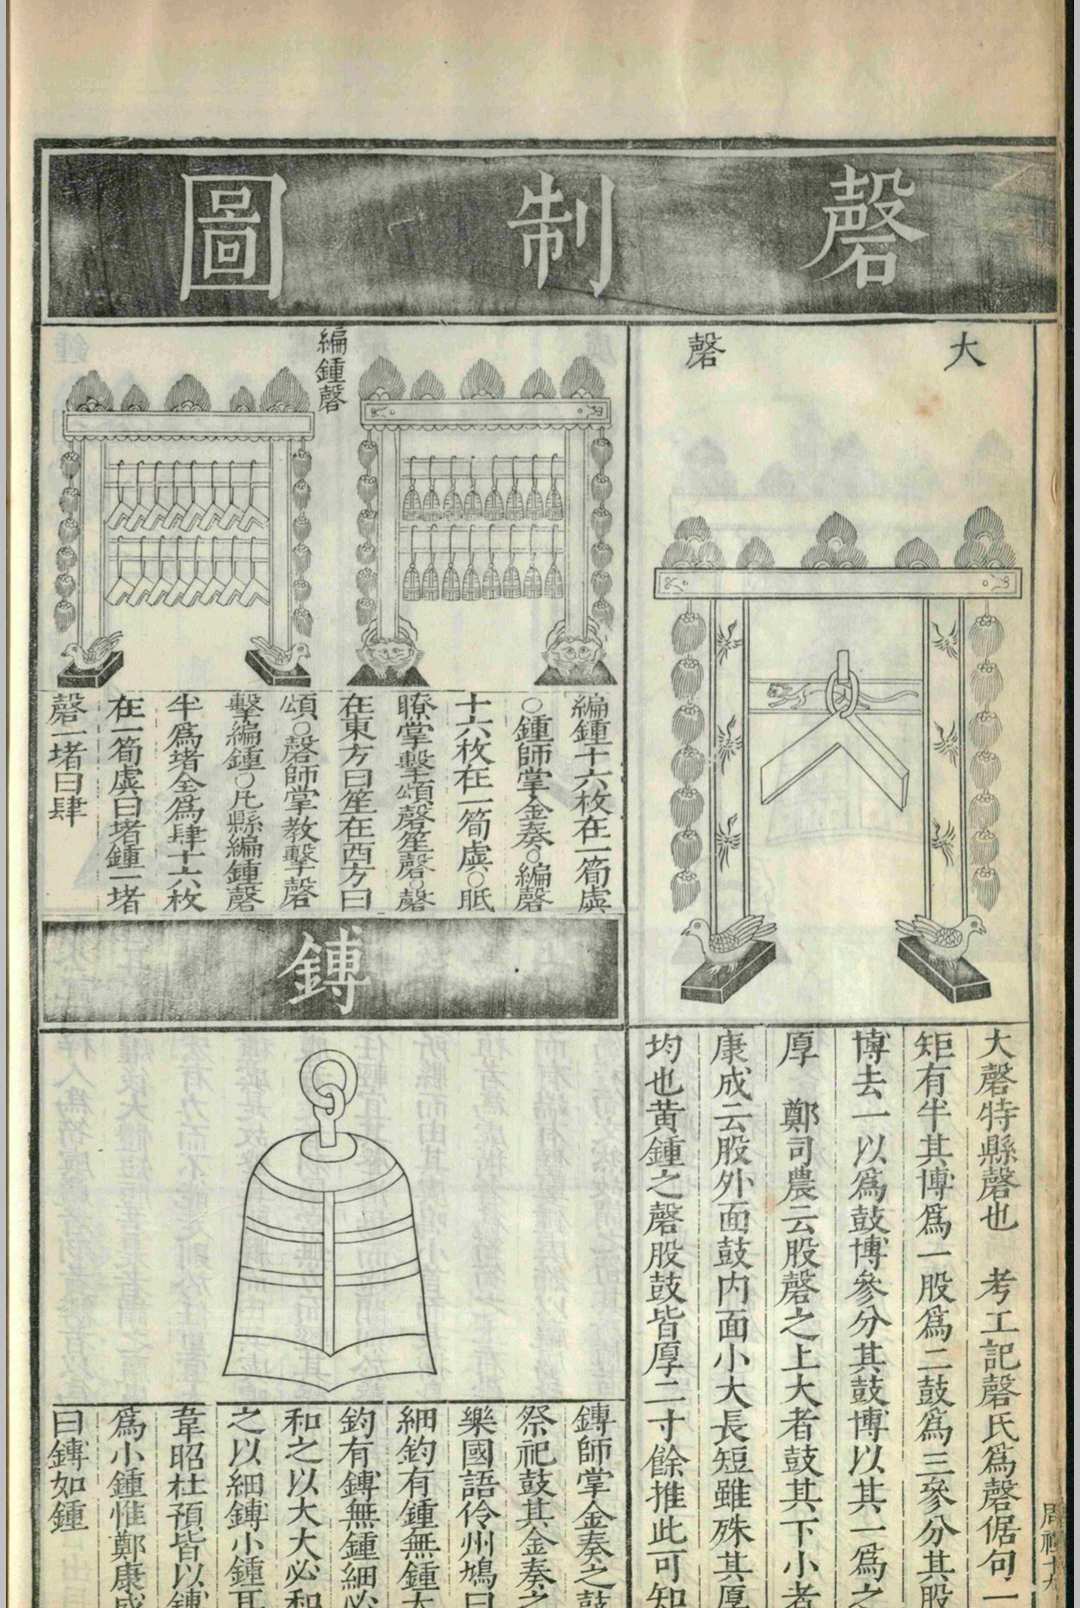 磬制圖
大磬
大磬特縣磬也　考工記磬氏爲磬倨句一
矩有半其博爲一股爲二鼓爲三參分其股
博去一以爲鼓博參分其鼓博以其一爲之
厚　鄭司農云股磬之上大者鼓其下小者
康成云股外面鼓内面小大長短雖殊其厚
均也黄鍾之磬股鼓皆厚二寸餘推此可知
編鍾磬
編鍾十六枚在一筍虡
○鍾師掌金奏○編磬
十六枚在一筍虡○眡
瞭掌擊頌磬笙磬○磬
在東方曰笙在西方曰
頌○磬師掌教擊磬
擊編鍾○凡縣編鍾磬
半爲堵全爲肆十六枚
在一筍虡曰堵鍾一堵
磬一堵曰肆
鎛
鎛師掌金奏之鼓
祭祀鼓其金奏之
樂國語伶州鳩曰
細鈞有鍾無鎛大
鈞有鎛無鍾細必
和之以大大必和
之以細鎛小鍾耳
韋昭杜預皆以鎛
爲小鍾惟鄭康成
曰鎛如鍾